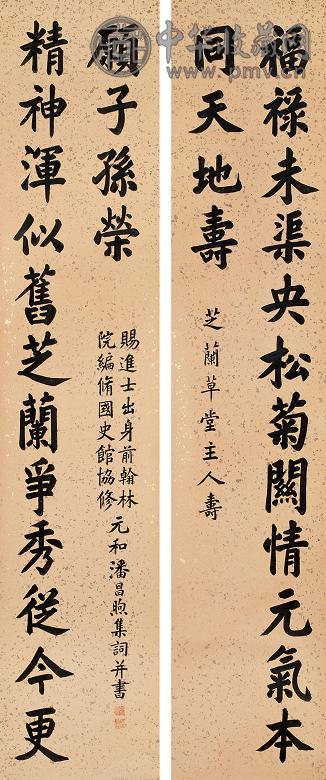 福祿未渠央松菊關情元氣本
同天地壽
芝蘭草堂主人壽
精神渾似舊芝蘭爭秀從今更
願子孫榮
賜進士出身前翰林
院編脩國史館協修
元和潘昌煦集詞并書
中华收藏网
www.pmv.cn